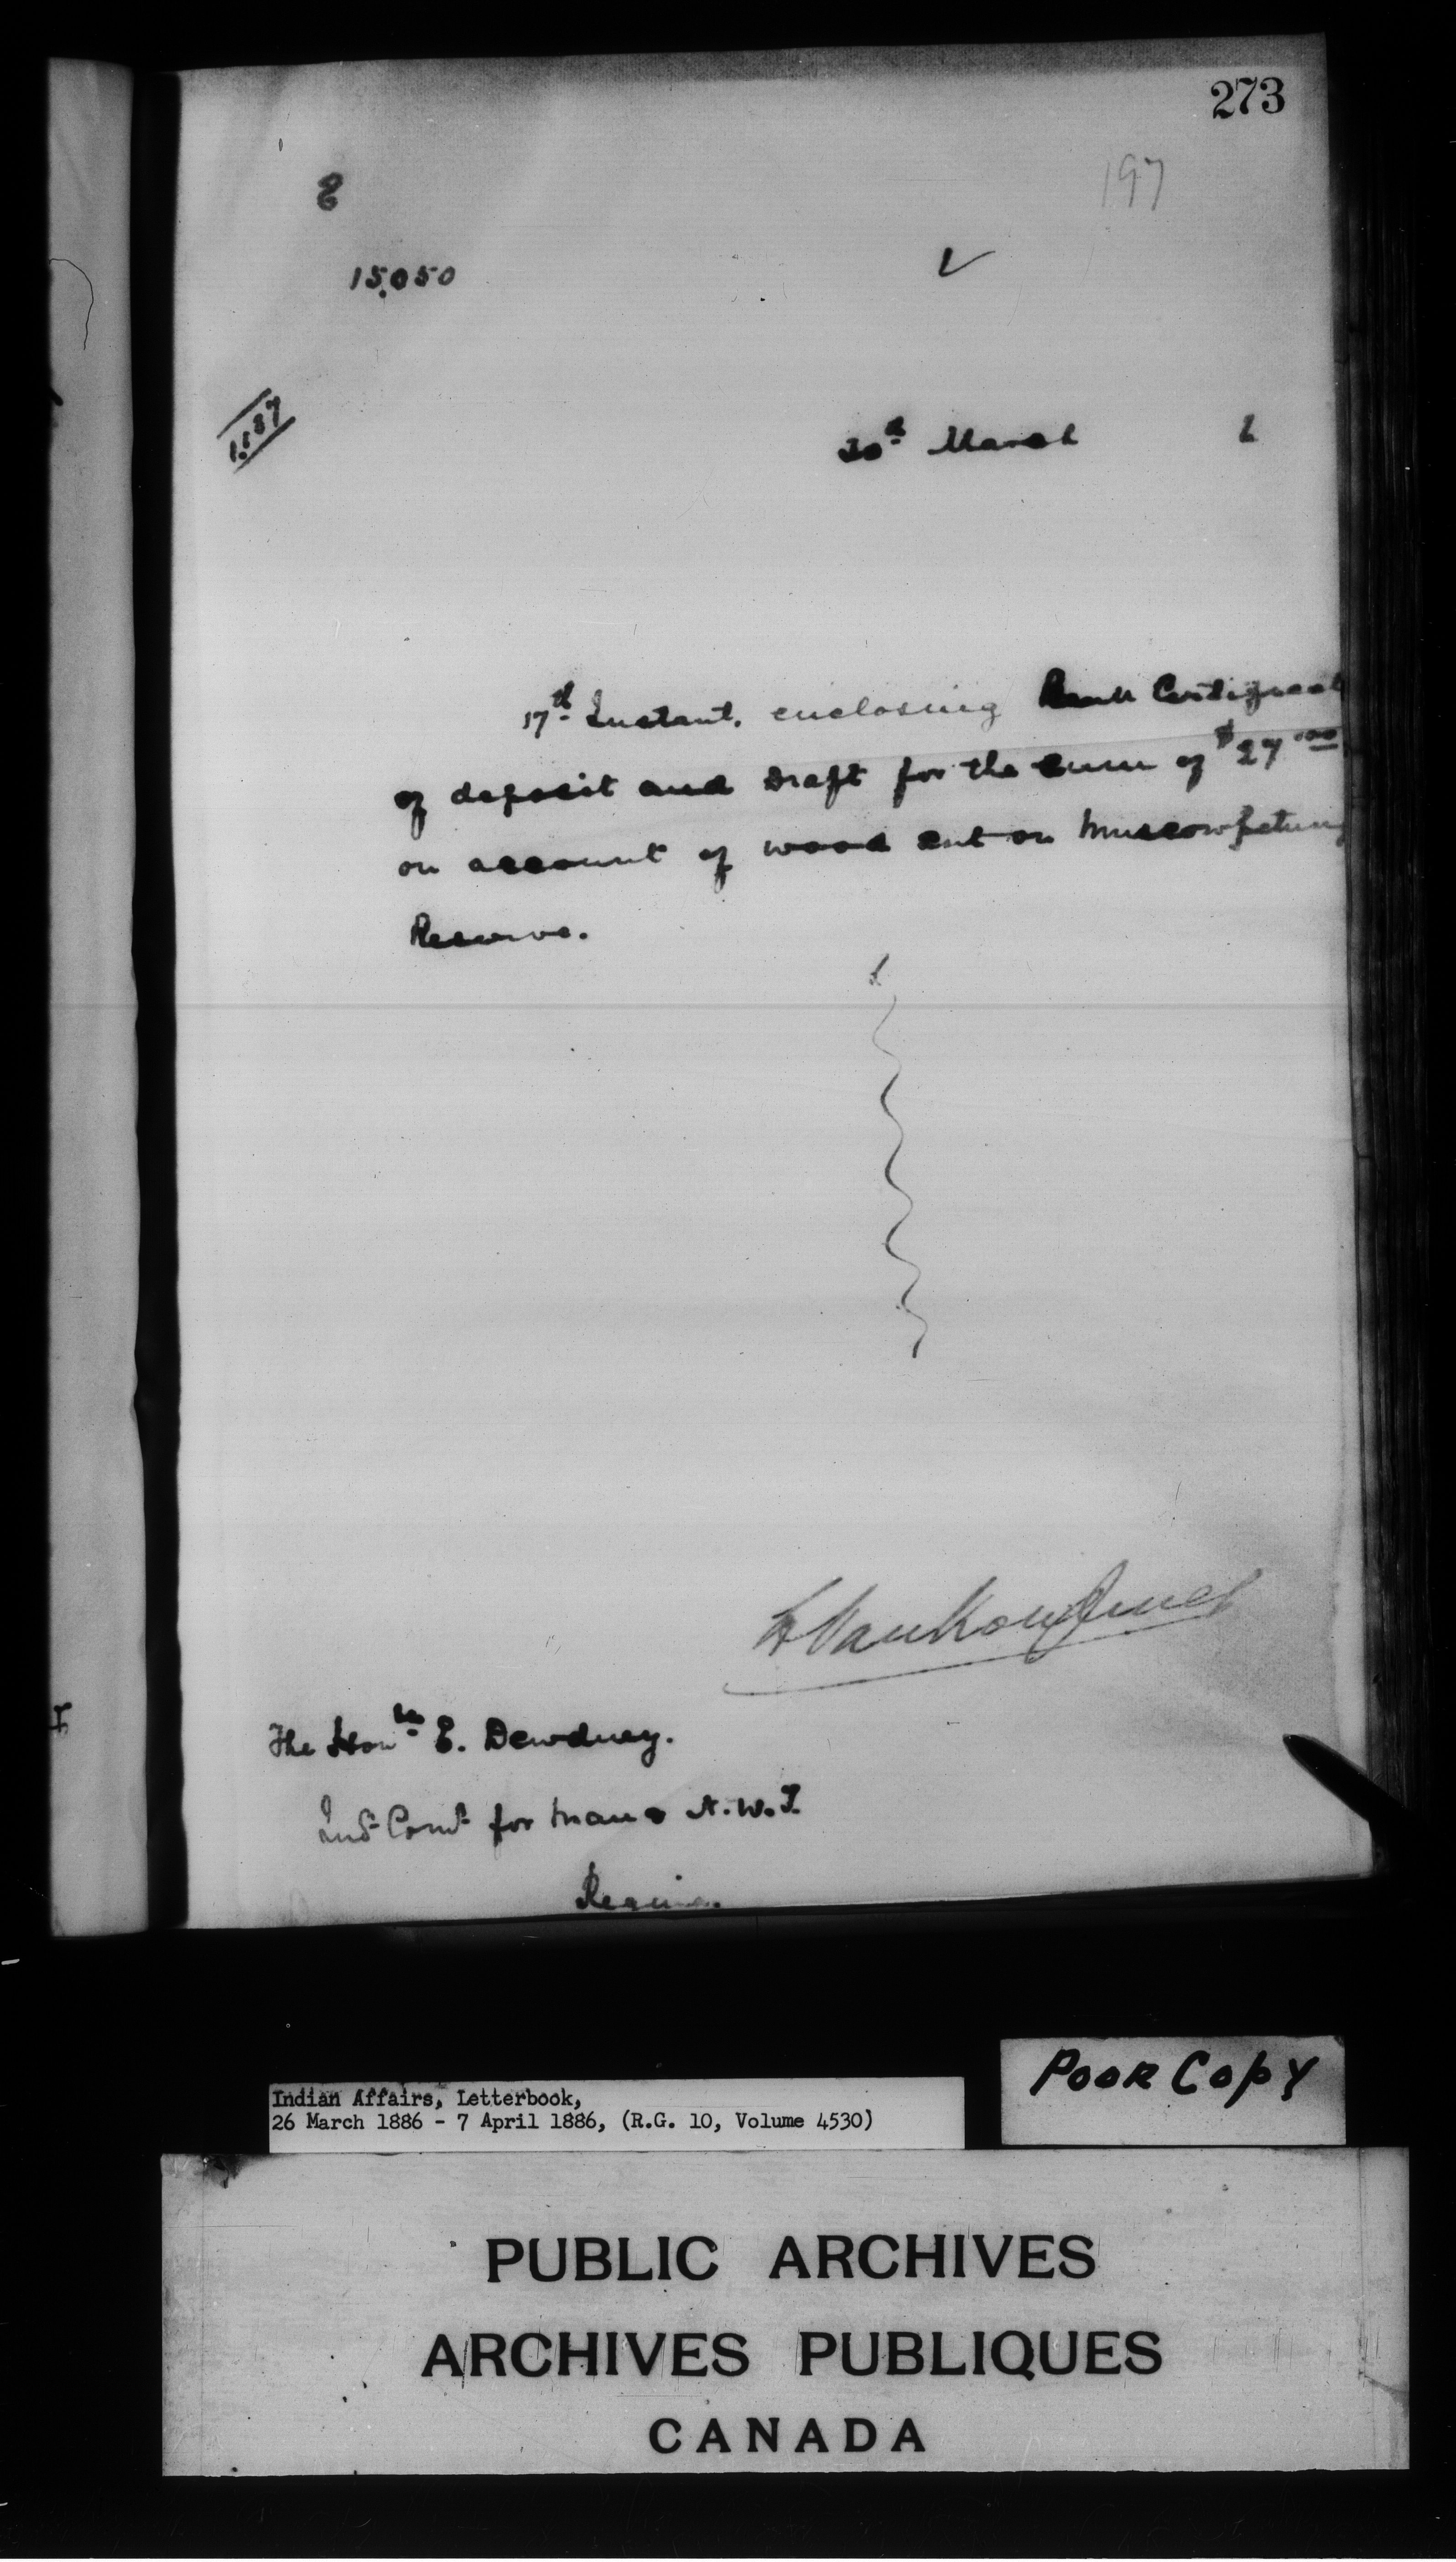 273
197
E
15.050
1.187
30th March 6
17th Instant, enclosing Bank Certificate
of deposit and Draft for the sum of $27.00
on account of wood cut on Muscowpetung
Reserve.
L VanKoughnet
The Honble E. Dewdney.
Ind Comr for Man & N.W.T.
Regina.
Poor Copy
Indian Affairs, Letterbook,
26 March 1886 - 7 April 1886, (R.G. 10, Volume 4530)
PUBLIC ARCHIVES
ARCHIVES PUBLIQUES
CANADA